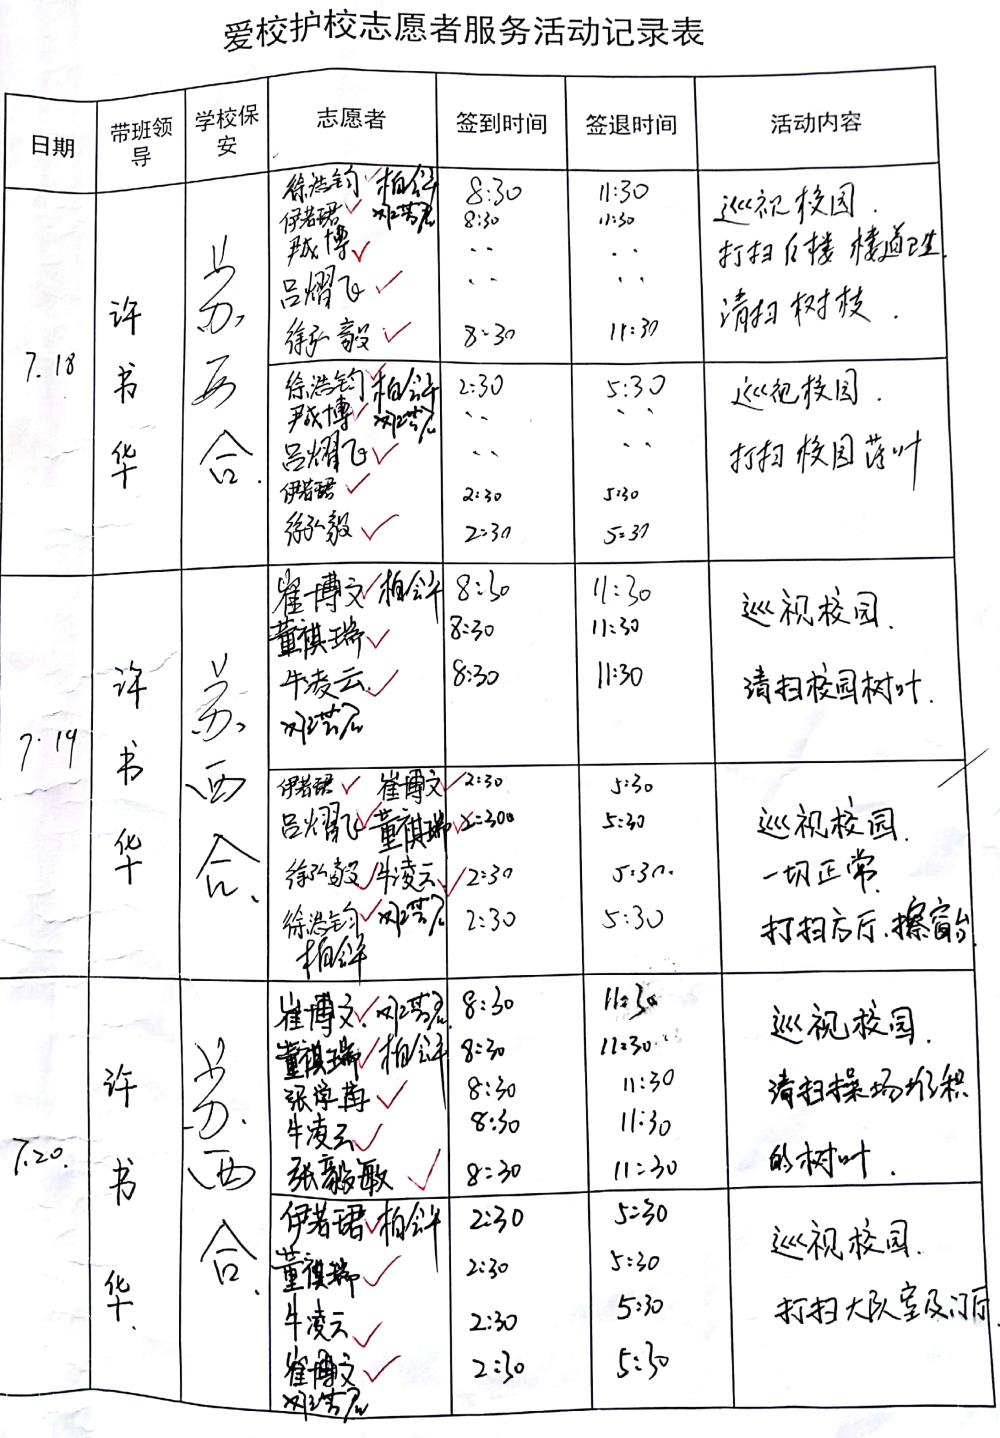 爱校护校志愿者服务活动记录表
日期 带班领导 学校保安 志愿者 签到时间 签退时间 活动内容
7.18 许书华 苏西合
徐浩钧 柏 8:30 11:30 巡视校园.
伊若珺 邓 8:30 11:30
尹成博 .. .. 打扫 楼 楼道卫生.
吕熠飞 .. .. 清扫树枝.
徐弘毅 8:30 11:30
徐浩钧 柏 2:30 5:30 巡视校园.
尹成博 邓 .. ..
吕熠飞 .. .. 打扫校园落叶
伊若珺 2:30 5:30
徐弘毅 2:30 5:30
7.19 许书华 苏西合.
崔博文 柏 8:30 11:30 巡视校园.
董祺瑞 8:30 11:30
牛凌云 8:30 11:30 清扫校园树叶.
邓
伊若珺 崔博文 2:30 5:30
吕熠飞 董祺瑞 2:30 5:30 巡视校园.
徐弘毅 牛凌云 2:30 5:30. 一切正常.
徐浩钧 邓 2:30 5:30 打扫 厅.擦窗台
柏
7.20. 许书华. 苏西合.
崔博文. 邓 8:30 11:30 巡视校园.
董祺瑞 柏 8:30 11:30
张学 8:30 11:30 清扫操场堆积
牛凌云 8:30 11:30
张毅敏 8:30 11:30 的树叶.
伊若珺 柏 2:30 5:30 巡视校园.
董祺瑞 2:30 5:30
牛凌云 2:30 5:30 打扫大队室及门厅.
崔博文 2:30 5:30
邓